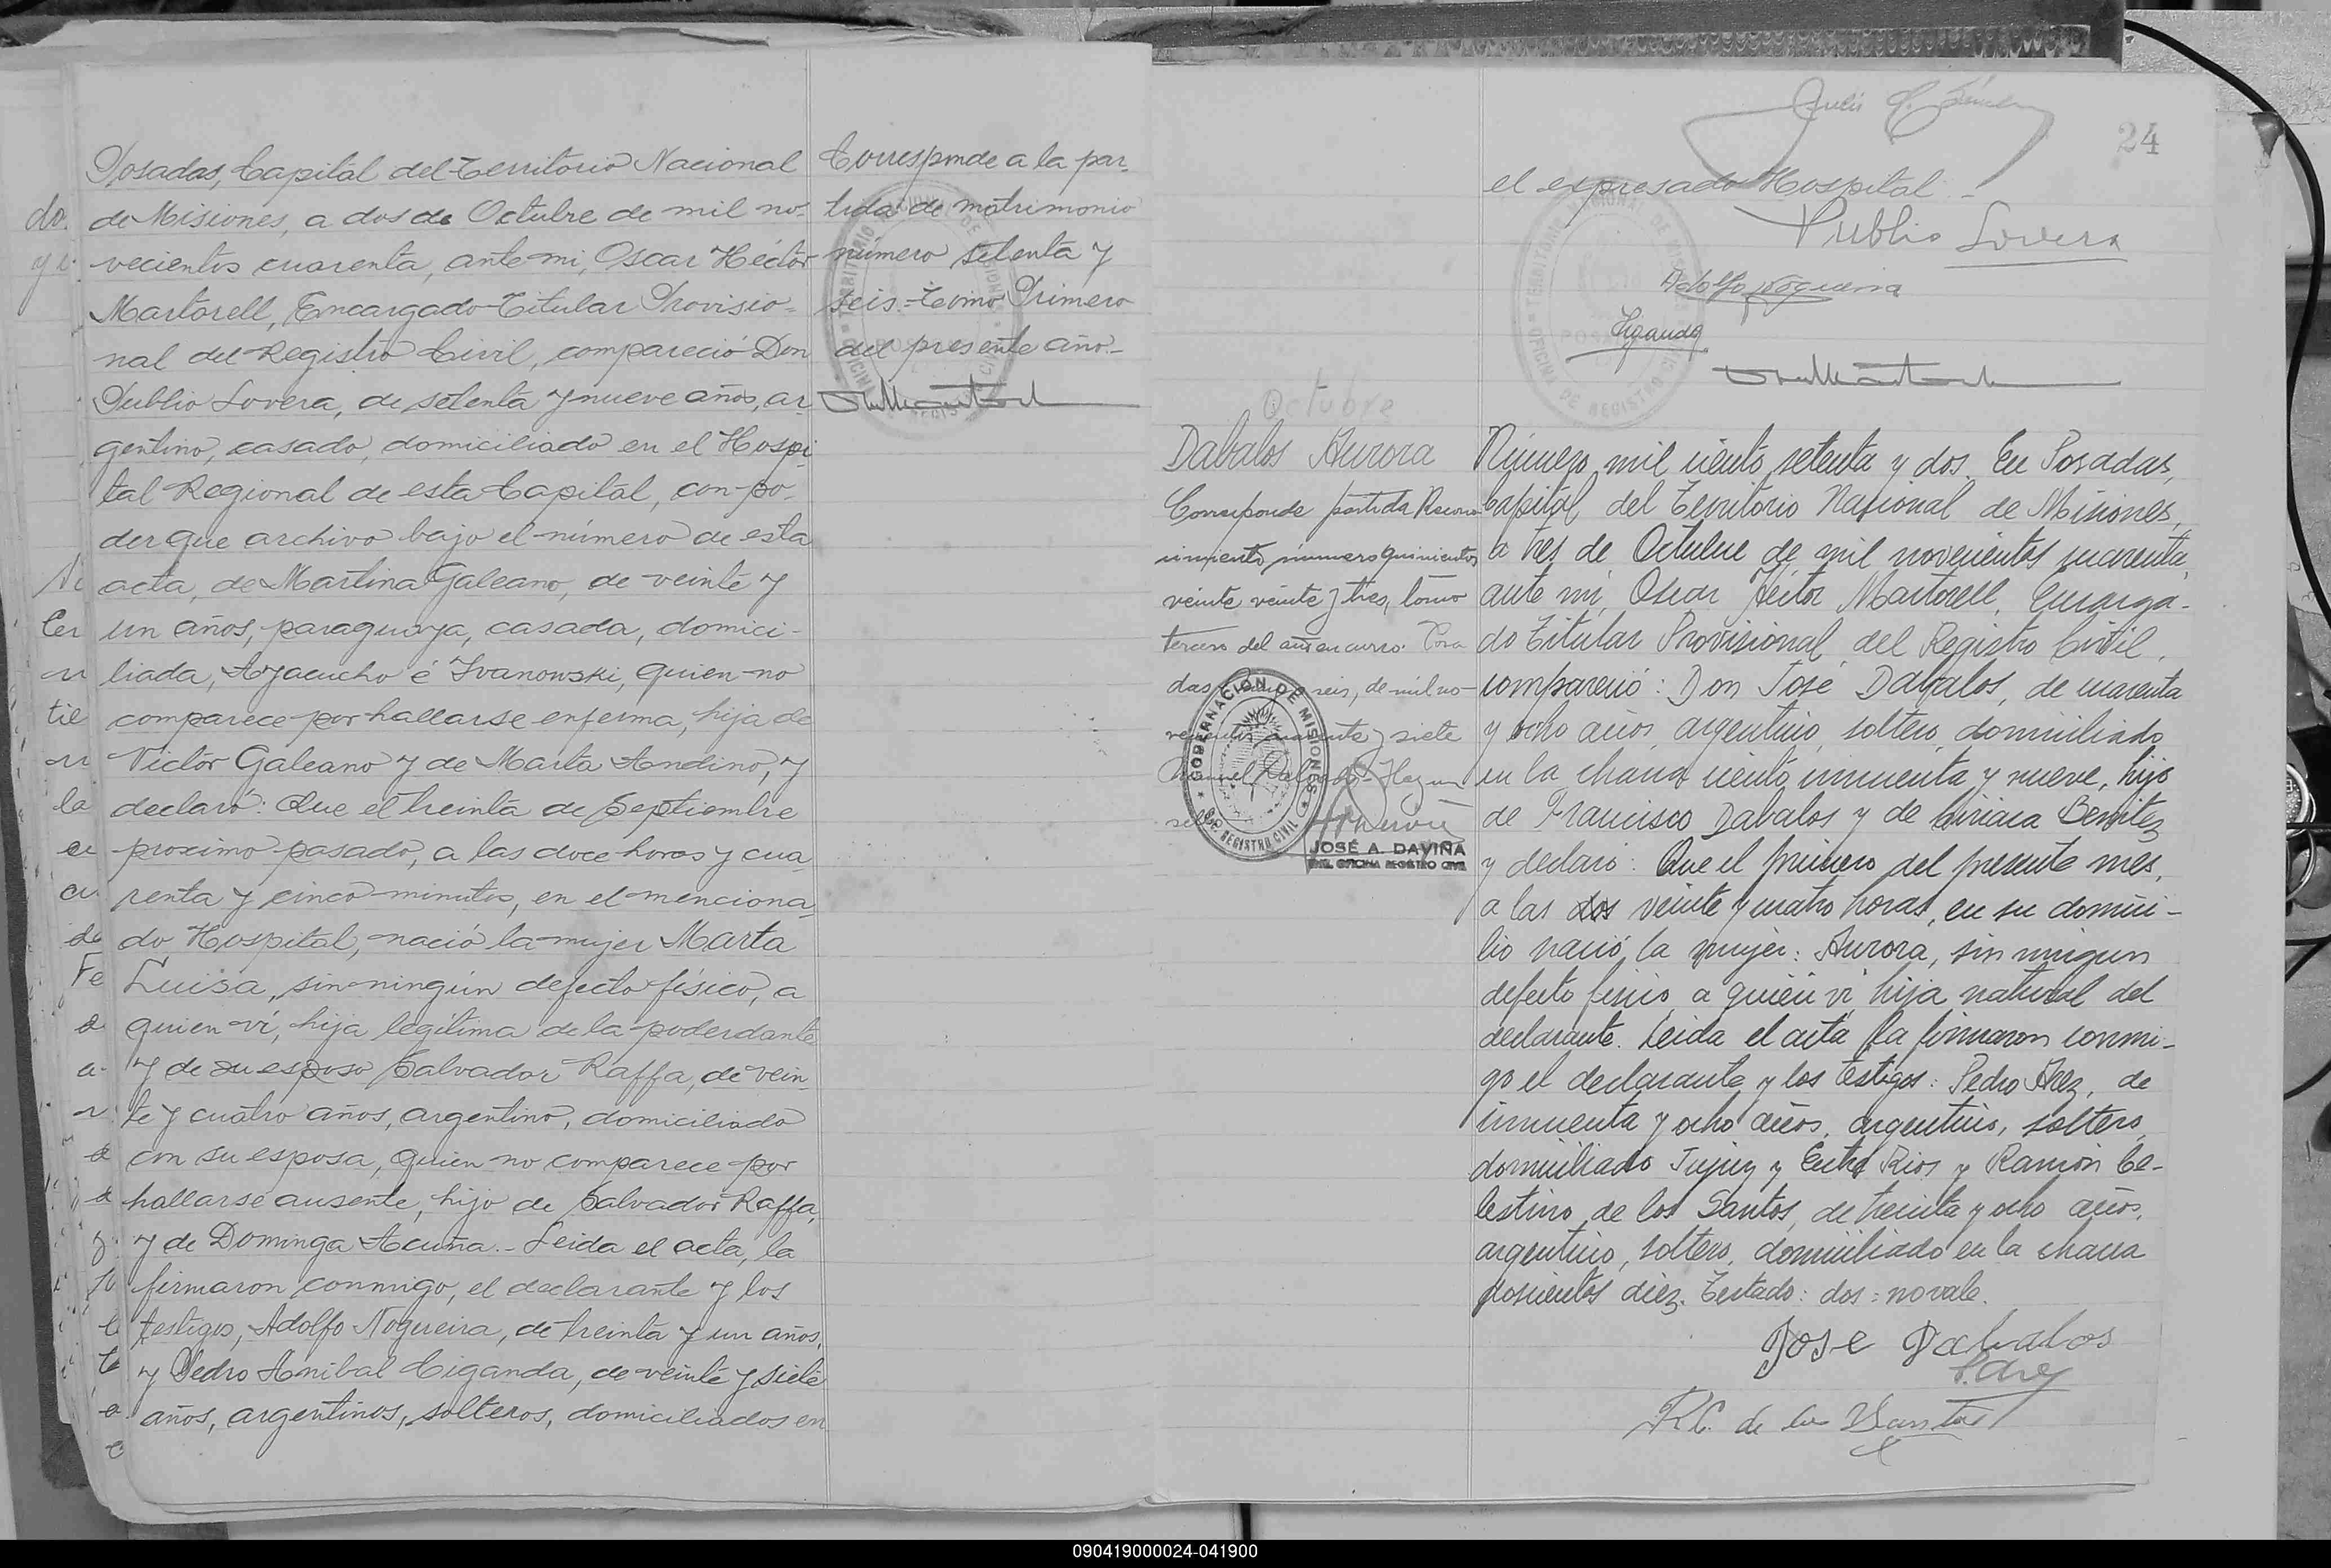 Posadas, Capital del Territorio Nacional
de Misiones, a dos de Octubre de mil no-
vecientos cuarenta, ante mi, Oscar Héctor
Martorell, Encargado Titular Provisio-
nal del Registro Civil, compareció Don
Publio Lovera, de setenta y nueve años, ar
gentino, casado, domiciliado en el Hospi
tal Regional de esta Capital, con po-
der que archivo bajo el número de esta
acta, de Martina Galeano, de veinte y
un años, paraguaya, casada, domici-
liada, Ayacucho é Ivanowski, quien no
comparece por hallarse enferma, hija de
Victor Galeano y de Marta Andino, y
declaró: Que el treinta de Septiembre
proximo pasado, a las doce horas y cua
renta y cinco minutos, en el menciona
do Hospital, nació la mujer Marta
Luisa, sin ningún defecto físico, a
quien ví, hija legítima de la poderdante
y de su esposo Salvador Raffa, de vein
te y cuatro años, argentino, domiciliado
con su esposa, quien no comparece por
hallarse ausente, hijo de Salvador Raffa,
y de Dominga Acuña.- Leida el acta, la
firmaron conmigo, el declarante y los
testigos, Adolfo Nogueira, de treinta y un años,
y Pedro Anibal Ciganda, de veinte y siete
años, argentinos, solteros, domiciliados en
Corresponde a la par-
tida de matrimonio
número setenta y
seis - Tomo Primero
del presente año.-
24
el expresado Hospital.-
Publio Lovera
Adolfo Nogueira
Ciganda
TERRITORIO NACIONAL DE MISIONES
POSADAS
OFICINA DE REGISTRO CIVIL
Octubre
Dabalos Aurora
Corresponde partida Recono
cimiento número quinientos
veinte veinte y tres, tomo
tercero del año en curso. Posa
das, seis, de mil no-
vecientos cuarenta y siete
GOBERNACIÓN DE MISIONES
REGISTRO CIVIL
JOSÉ A. DAVIÑA
OFICINA REGISTRO CIVIL
Número mil ciento setenta y dos. En Posadas,
Capital del Territorio Nacional de Misiones,
a tres de Octubre de mil novecientos cuarenta,
ante mí, Oscar Héctor Martorell, Encarga-
do Titular Provisional del Registro Civil,
compareció: Don José Dabalos, de cuarenta
y ocho años, argentino, soltero, domiciliado
en la chacra ciento cincuenta y nueve, hijo
de Francisco Dabalos y de Ciriaca Benitez
y declaró: Que el primero del presente mes,
a las dos veinte y cuatro horas, en su domici-
lio nació la mujer: Aurora, sin ningun
defecto fisico, a quién ví, hija natural del
declarante. Leida el acta, la firmaron conmi-
go el declarante y los testigos: Pedro Aez, de
cincuenta y ocho años, argentino, soltero,
domiciliado Jujuy y Entre Rios y Ramón Ce-
lestino de los Santos, de treinta y ocho años,
argentino, soltero, domiciliado en la chacra
doscientos diez. Testado: dos = no vale.
Jose Dabalos
R C. de los Santos
090419000024-041900